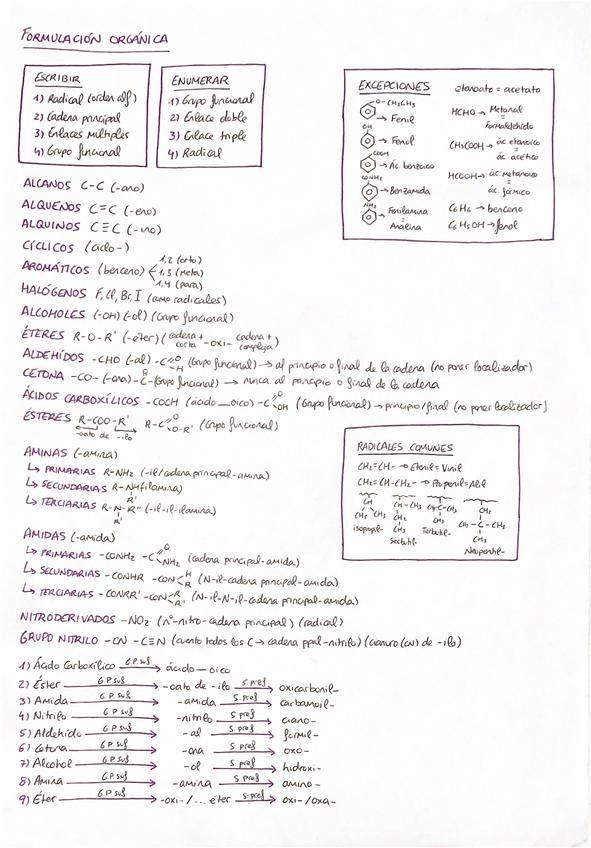 FORMULACIÓN ORGÁNICA
ESCRIBIR
1) Radical (orden alf)
2) Cadena principal
3) Enlaces Múltiples
4) Grupo funcional
ENUMERAR
1) Grupo funcional
2) Enlace doble
3) Enlace triple
4) Radical
EXCEPCIONES
O-CH2CH3
→ Fenil
OH
→ Fenol
COOH
→ Ác. benzoico
CONH2
→ Benzamida
NH2
→ Fenilamina
=
Analina
etanoato = acetato
HCHO → Metanal
=
Formaldehído
CH3COOH → ác etanoico
=
ác acético
HCOOH → ác. metanoico
=
ác. fórmico
C6H6 → benceno
C6H5OH → fenol
ALCANOS C-C (-ano)
ALQUENOS C=C (-eno)
ALQUINOS C≡C (-ino)
CÍCLICOS (ciclo-)
AROMÁTICOS (benceno) 1,2 (orto)
1,3 (meta)
1,4 (para)
HALÓGENOS F, Cl, Br, I (como radicales)
ALCOHOLES (-OH) (-ol) (Grupo funcional)
ÉTERES R-O-R' (-éter) (cadena + corta -oxi- cadena + compleja)
ALDEHÍDOS -CHO (-al) -C=O H (Grupo funcional) → al principio o final de la cadena (no poner localizador)
CETONA -CO- (-ona) -C- O (Grupo funcional) → nunca al principio o final de la cadena
ÁCIDOS CARBOXÍLICOS -COOH (ácido __oico) -C=O OH (Grupo funcional) → principio/final (no poner localizador)
ÉSTERES R-COO-R' R-C=O O-R' (Grupo funcional)
-oato de -ilo
AMINAS (-amina)
↳ PRIMARIAS R-NH2 (-il/cadena principal-amina)
↳ SECUNDARIAS R-NH(filamina)
R'
↳ TERCIARIAS R-N-R'' (-il-il-ilamina)
R'
RADICALES COMUNES
CH2=CH- → Etenil = Vinil
CH2=CH-CH2- → Propenil = Alil
CH
CH3 CH3
isopropil-
CH-CH3
CH2
CH3
Secbutil-
CH3-C-CH3
CH3
Terbutil-
CH2
CH3-C-CH3
CH3
Neopentil-
AMIDAS (-amida)
↳ PRIMARIAS -CONH2 -C=O NH2 (cadena principal-amida)
↳ SECUNDARIAS -CONHR -CON H R (N-il-cadena principal-amida)
↳ TERCIARIAS -CONRR' -CON R R' (N-il-N-il-cadena principal-amida)
NITRODERIVADOS -NO2 (nº-nitro-cadena principal) (radical)
GRUPO NITRILO -CN -C≡N (cuento todos los C → cadena ppal-nitrilo) (cianuro (CN) de -ilo)
1) Ácido Carboxílico G.P suf → ácido __ oico
2) Éster G.P suf → -oato de -ilo S. pref → oxicarbonil-
3) Amida G.P suf → -amida S. pref → carbamoil-
4) Nitrilo G.P suf → -nitrilo S. pref → ciano-
5) Aldehído G.P suf → -al S. pref → formil-
6) Cetona G.P suf → -ona S. pref → oxo-
7) Alcohol G.P suf → -ol S. pref → hidroxi-
8) Amina G.P suf → -amina S. pref → amino-
9) Éter G.P suf → -oxi-/... éter S. pref → oxi-/oxa-